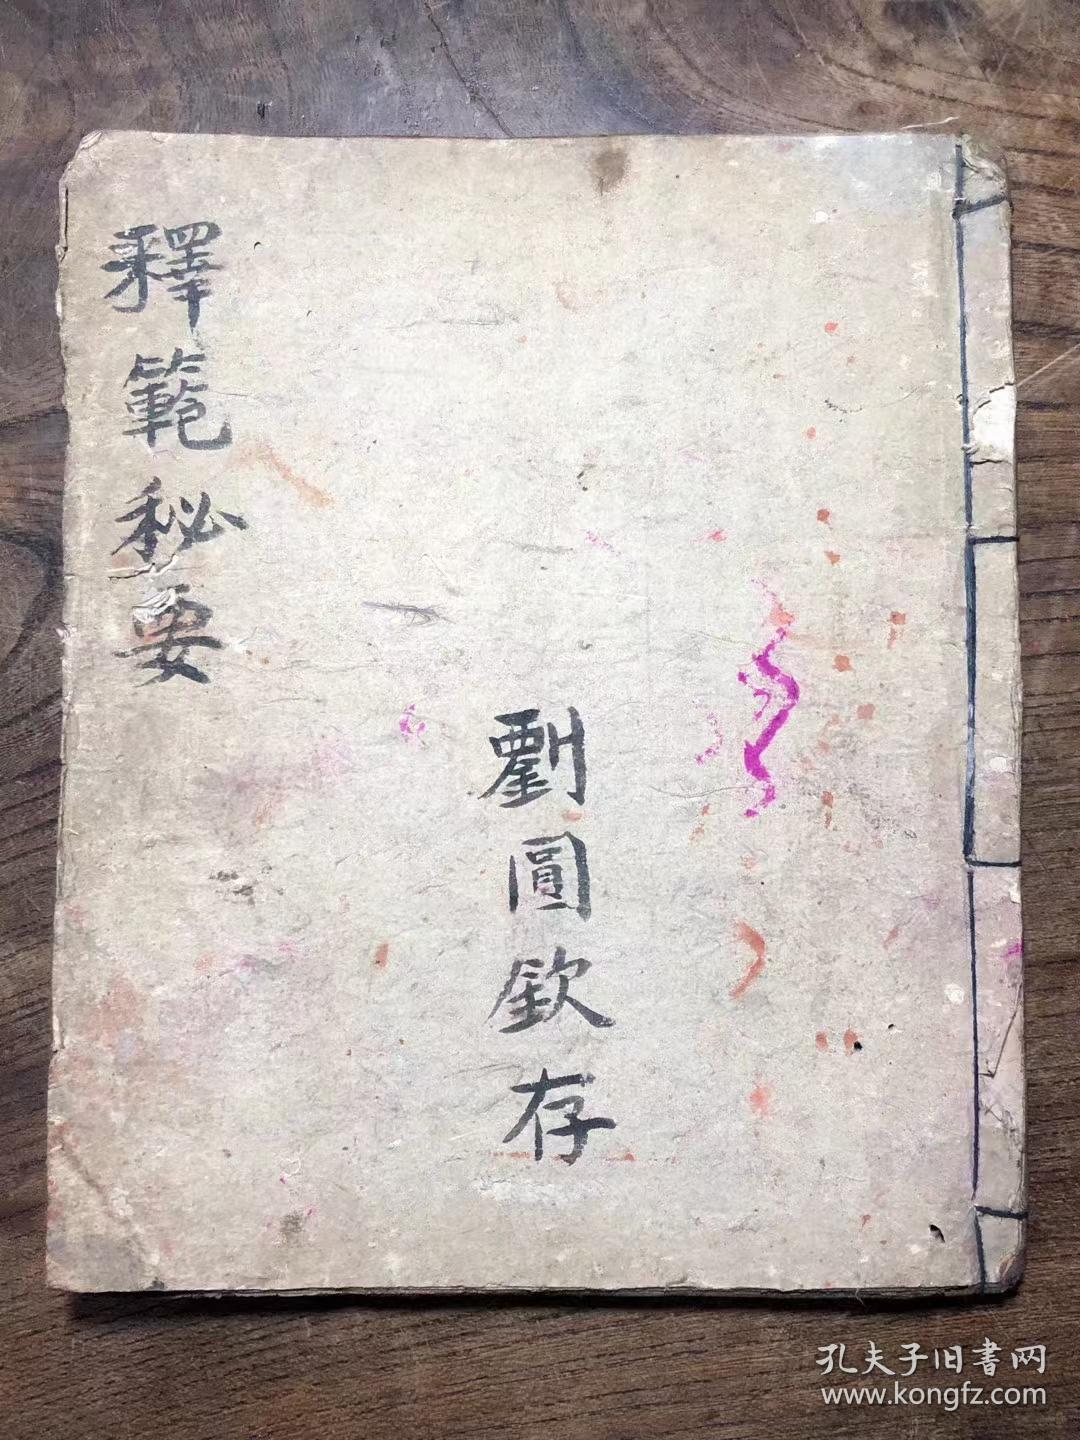 釋範秘要
劉圓欽存
孔夫子旧書网
www.kongfz.com